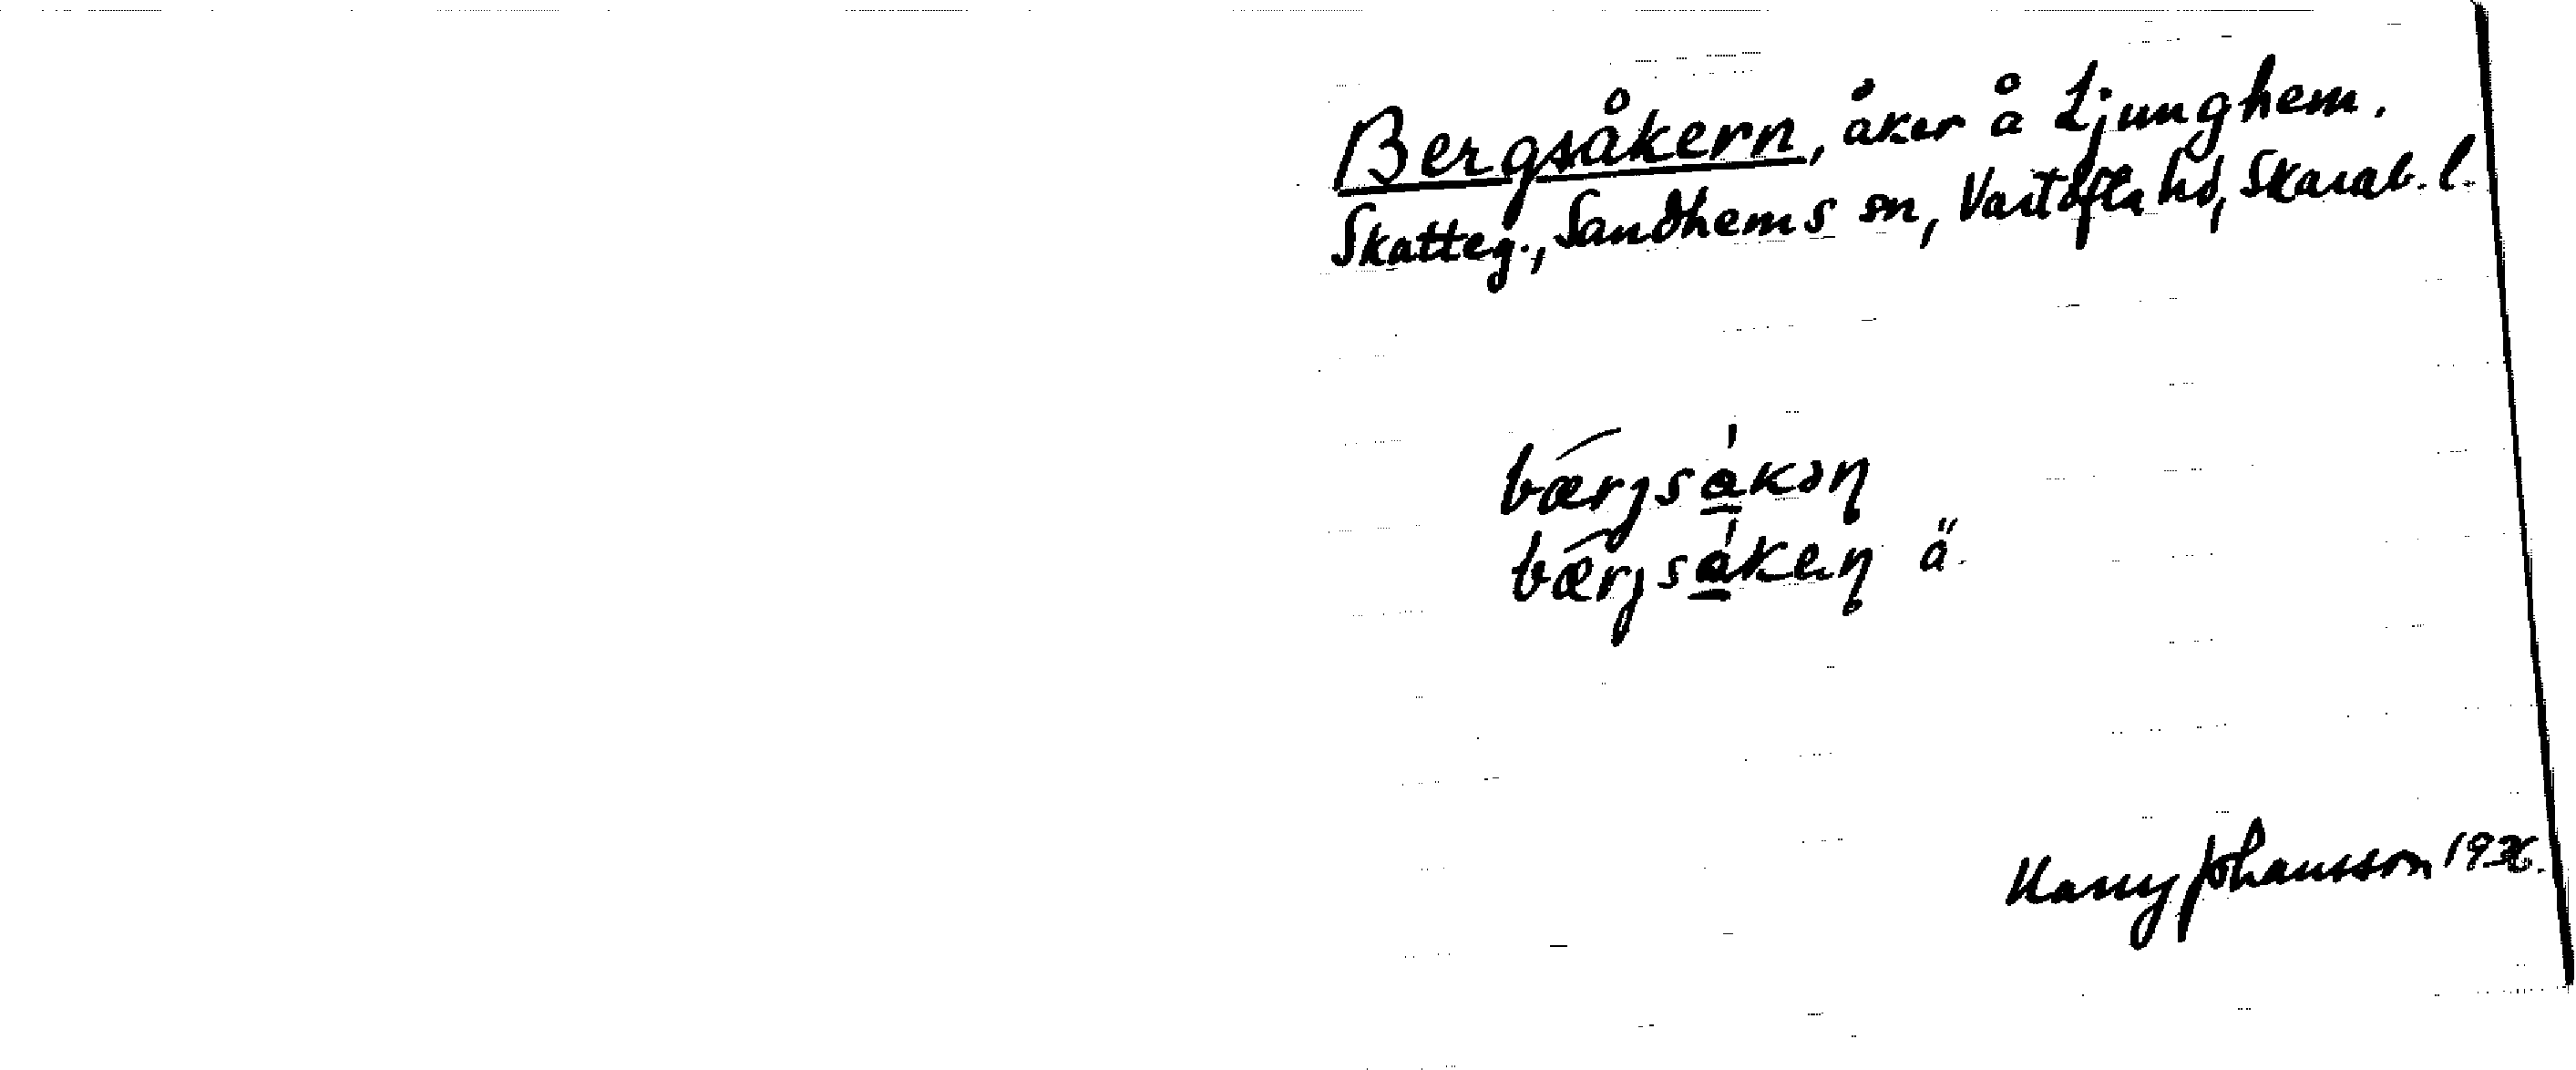 Bergsåkern, åker å Ljunghem.
Skatteg., Sandhems sn, Vartofta hd, Skarab. l.
bærjsåkəṇ
bærjsåkeṇ ä.
Harry Johansson